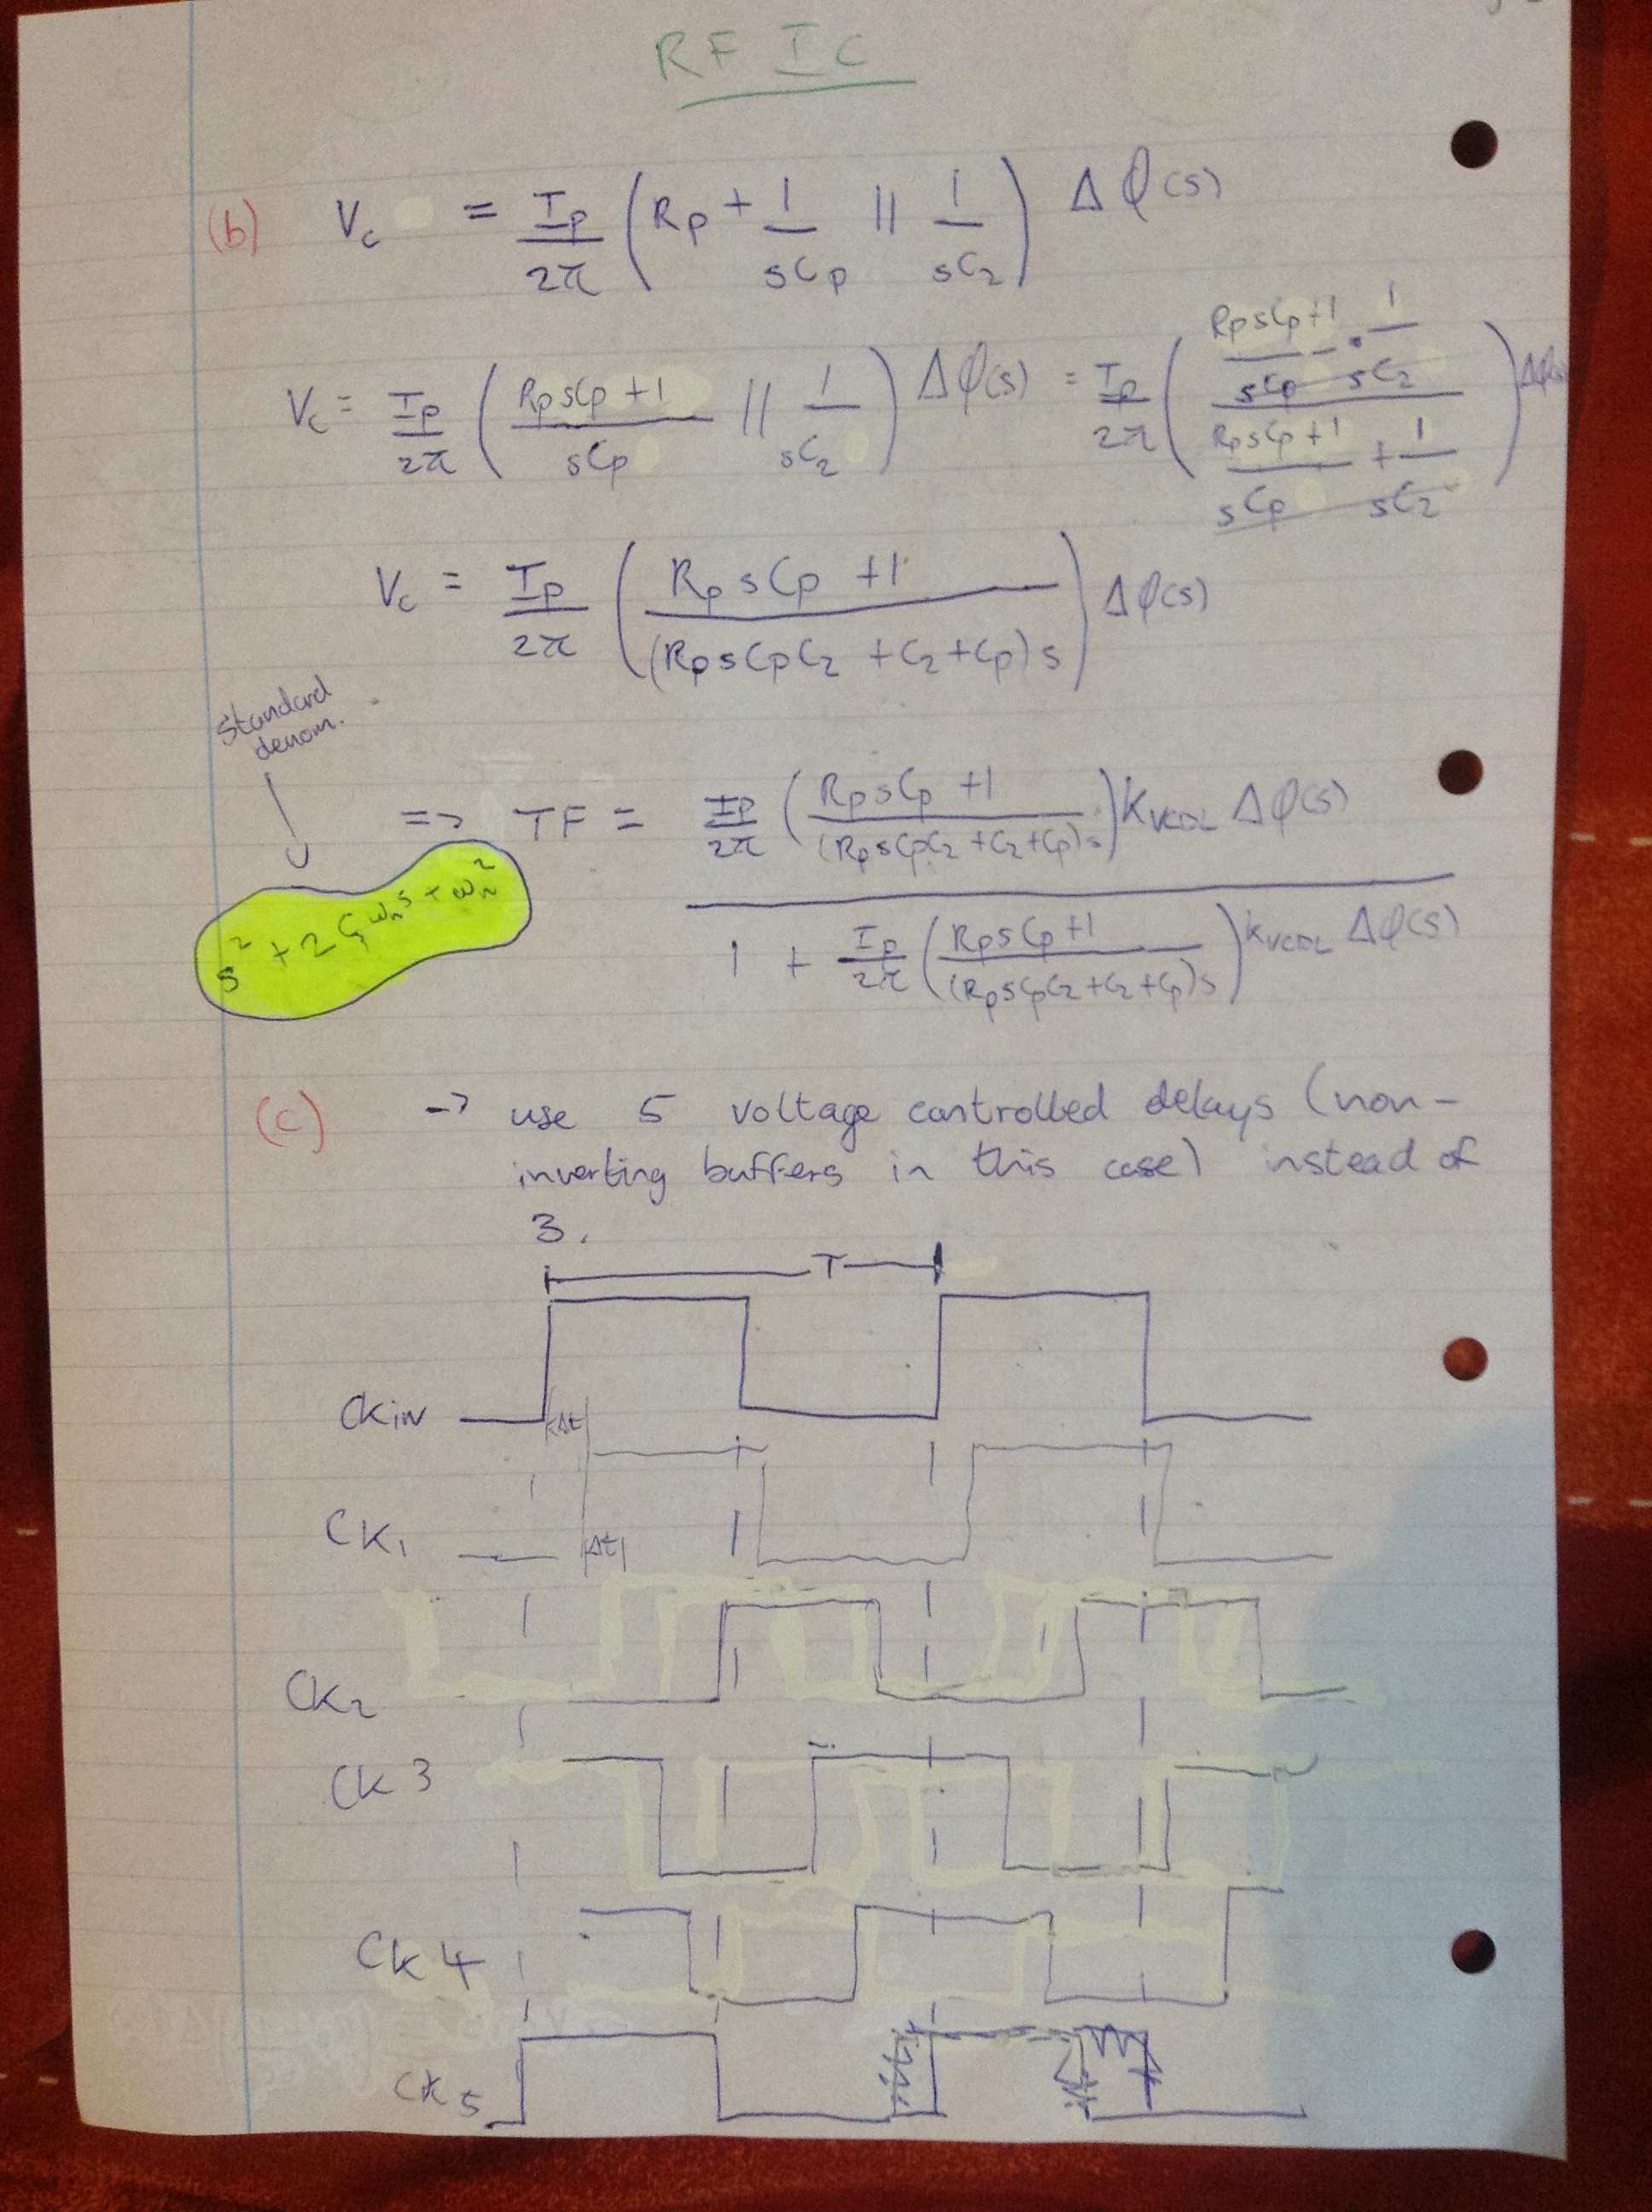 RF IC
(b) Vc = Ip/2π (Rp + 1/sCp || 1/sC2) Δφ(s)
Vc = Ip/2π (RpsCp+1/sCp || 1/sC2) Δφ(s) = Ip/2π (RpsCp+1/sCp · 1/sC2 / RpsCp+1/sCp + 1/sC2) Δφ(s)
Vc = Ip/2π (RpsCp+1/(RpsCpC2+C2+Cp)s) Δφ(s)
Standard
denom.
=> TF = Ip/2π (RpsCp+1/(RpsCpC2+C2+Cp)s) KVCDL Δφ(s)
s²+2ζωns+ωn²
1 + Ip/2π (RpsCp+1/(RpsCpC2+C2+Cp)s) KVCDL Δφ(s)
(c) -> use 5 voltage controlled delays (non-
inverting buffers in this case) instead of
3.
T
CKIN
Δt
CK1
Δt
CK2
CK3
CK4
CK5